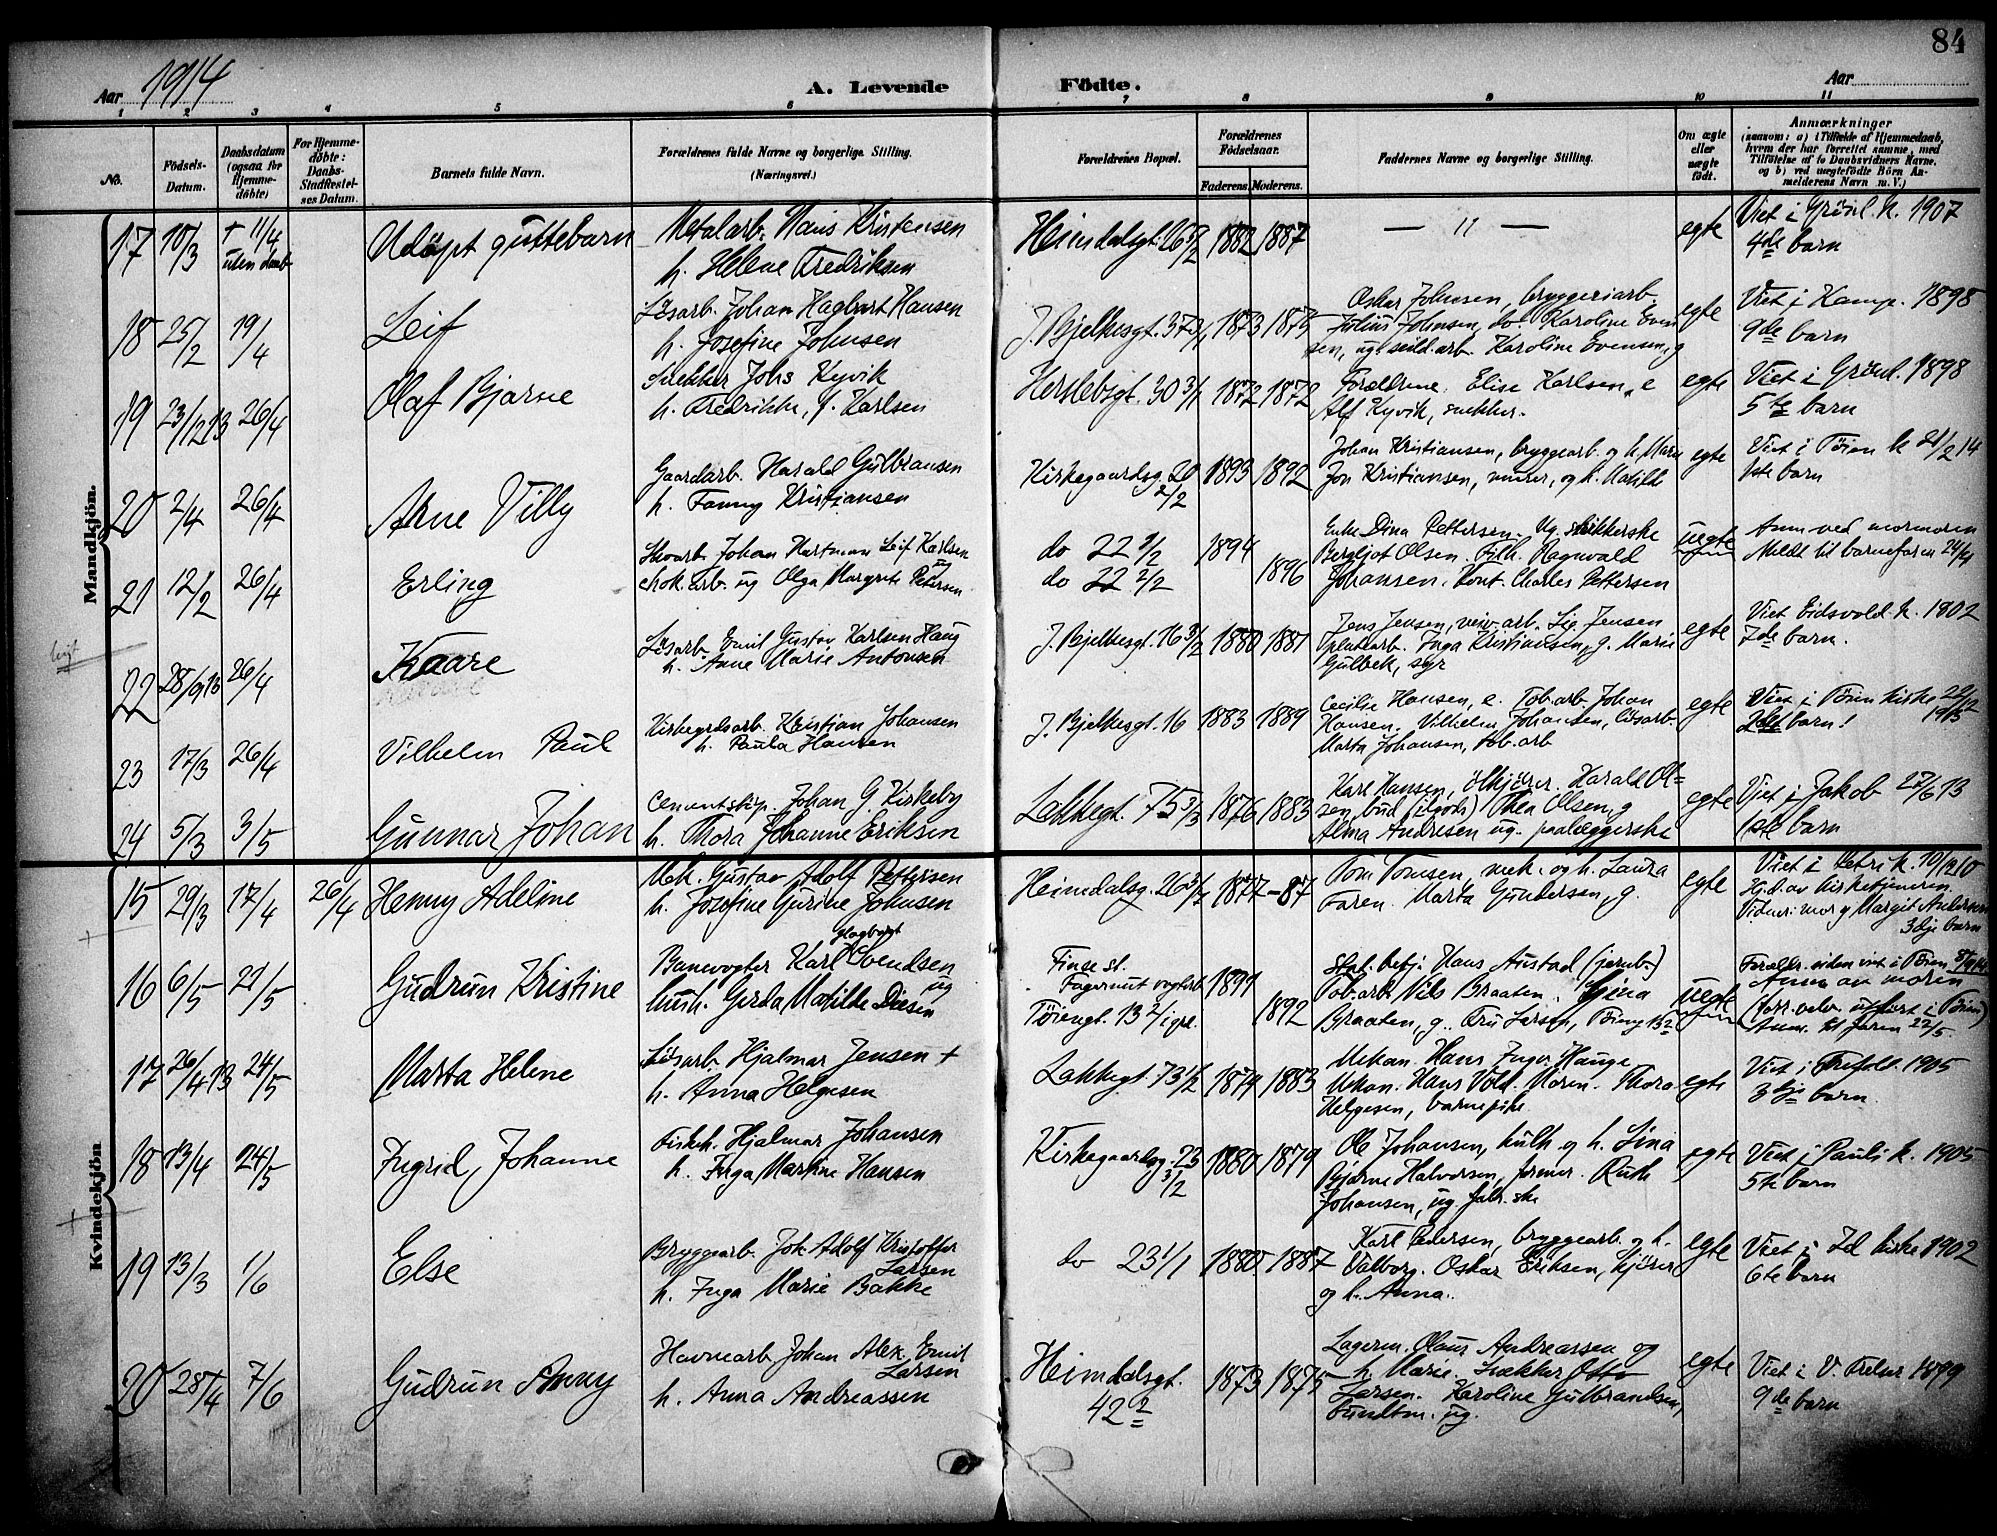 84
Aar 1914
A. Levende Födte.
Aar
1 2 3 4 5 6 7 8 9 10 11
No.
Födsels-Datum.
Daabsdatum (ogsaa for Hjemmedöbte)
For Hjemmedöbte: Daabs-Stadfæstelses Datum.
Barnets fulde Navn.
Forældrenes fulde Navne og borgerlige Stilling.
(Næringsvei.)
Forældrenes Bopæl.
Forældrenes Födselsaar.
Faderens. Moderens.
Faddernes Navne og borgerlige Stilling.
Om ægte eller uægte födt.
Anmærkninger
(saasom: a) i Tilfælde af Hjemmedaab,
hvem der har forrettet samme, med
Tilföielse af to Daabsvidners Navne,
og b) ved uægtefödte Börn Anmelderens Navn m. V.)
Mandkjön.
17 10/3 + 11/4 uten daab Udöpt guttebarn
Metalarb. Hans Kristensen
h. Helene Fredriksen
Heimdalsgt. 26 1882 1887 — 11 — egte
Viet i Grönl. k. 1907
4de barn
18 25/2 19/4 Leif
Lösarb. Johan Hagbart Hansen
h. Josefine Johnsen
J. Bjelkesgt. 37 1873 1875
Oskar Johnsen, bryggeriarb.
Julius Johnsen, do. Karoline Evensen, ug. Karoline Evensen, g
egte
Viet i Kamp. 1898
9de barn
19 23/12 13 26/4 Olaf Bjarne
Snekker Johs Kyvik
h. Fredrikke, f. Karlsen
Herslebsgt. 30 3/1 1872 1872
Forældrene. Elise Karlsen, e
Alf Kyvik, snekker.
egte
Viet i Grönl. 1898
5te barn
20 2/4 26/4 Arne Villy
Gaardarb. Harald Gulbransen
h. Fanny Kristiansen
Kirkegaardsg. 20 2/2 1893 1892
Johan Kristiansen, bryggearb. og h. Marie
Jon Kristiansen, murer, og h. Matilde
egte
Viet i Töien k 21/2 14
1ste barn
21 12/2 26/4 Erling
Skoarb. Johan Hartman Leif Karlsen
og
chok. arb. ug Olga Margrete Petersen
do 22 1/2 1894
do 22 2/2 1896
Enke Dina Pettersen. Ug.
Bergljot Olsen. Ragnvald
Johansen. Kont. Charles Pettersen
uegte
Anm. ved mormoren
Meldt til barnefaren 24/4
22 28/9 13 26/4 Kaare
Lösarb. Emil Gustav Karlsen Haug
h. Anne Marie Antonsen
J. Bjelkesgt. 16 3/2 1880 1881
Jens Jensen, veiv.arb. Sig. Jensen
Inga Kristiansen, g. Marie
Gulbek, syr
egte
Viet Eidsvold k. 1802
7de barn.
23 17/3 26/4 Vilhelm Paul
Kirkegrdsarb. Kristian Johansen
h. Paula Hansen
J. Bjelkesgt. 16 1883 1889
Cecilie Hansen, e. Tob. arb. Johan
Hansen. Vilhelm Johansen, lösarb.
Marta Johansen, tob. arb
egte
Viet i Töien kirke
2det barn!
24 5/3 3/5 Gunnar Johan
Cementstöp. Johan G. Kirkeby
h. Thora Johanne Eriksen
Lakkegt. 75 3/3 1876 1883
Karl Hansen, ölkjörer. Harald Olsen, bud (ilgods) Thea Olsen, g
Alma Andresen ug. paalæggerske
egte
Viet i Jakob 27/6 13
1ste barn
Kvindekjön
15 29/3 17/4 26/4 Henny Adeline
Mek. Gustav Adolf Pettersen
h. Josefine Gurine Johnsen
Heimdalsg. 26 1877 -87
Tom Tomsen, mek. og h. Laura
Faren. Marta Gundersen, g.
egte
Viet i Petri k. 10/12 10
Hj.d. av kirketjeneren.
Vidner: mor og Margit Andersen
3dje barn
16 6/5 21/5 Gudrun Kristine
Banevogter Karl Svendsen
og
hush. Gerda Matilde Diesen
Finse st.
Fagernut
Töiengt. 13 1891
1892
Stat. betj. Hans Austad (jernb.)
Tob. arb. Nils Braaten. Gina
Braaten, g. Fru Larsen, Töieng 13
uegte
Forældr. siden viet i Töien
Anm. av moren
Anm. til faren 22/5.
17 26/4 13 24/5 Marta Helene
Lösarb. Hjalmar Jensen +
h. Anna Helgesen
Lakkegt. 73 1/2 1879 1883
Mekan. Hans Inger Hauge
Mekan. Hans Vold. Moren. Thora
Helgesen, barnepike.
egte
Viet i Trefold. 1905
3dje barn.
18 13/4 24/5 Ingrid Johanne
Fiskeh. Hjalmar Johansen
h. Inga Martine Hansen
Kirkegaardsg. 23 3/2 1880 1879
Ole Johansen, kulh. og h. Lina
Bjarne Halvorsen, former. Ruth
Johansen, ug. fabr. ske
egte
Viet i Pauls k. 1905
5te barn
19 13/3 1/6 Else
Bryggearb. Joh. Adolf Kristoffer
Larsen
h. Inga Marie Bakke
do 23 1/1 1880 1887
Karl Pedersen, bryggearb. og h.
Valborg. Oskar Eriksen, kjörer
og h. Anna.
egte
Viet i Id kirke 1902
6te barn
20 28/4 7/6 Gudrun Anny
Havnearb. Johan Alex. Emil
Larsen
h. Anna Andreassen
Heimdalsgt.
42 2 1873 1875
Lagerm. Olaus Andreassen og
h. Marie. Snekker Otto
Larsen. Karoline Gulbrandsen,
ug.
egte
Viet i V. Freln 1899
9de barn